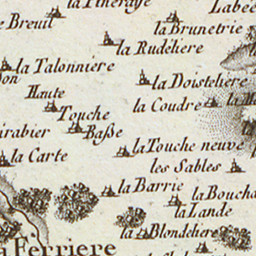 la Pheraye
Labée
e Breuil
la Brunetrie
la Rudéhere
la Talonniere
la Doistehere
Haute
la Coudre
Touche
Baße
la Touche neuve
la Carte
les Sables
la Barrie
la Bouch
la Lande
la Blondehere
Ferriere